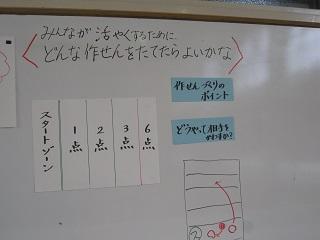 みんなが活やくするために
どんな作せんをたてたらよいかな
作せんづくりの
ポイント
どうやって相手を
かわすか?
スタートゾーン
1点
2点
3点
6点
②